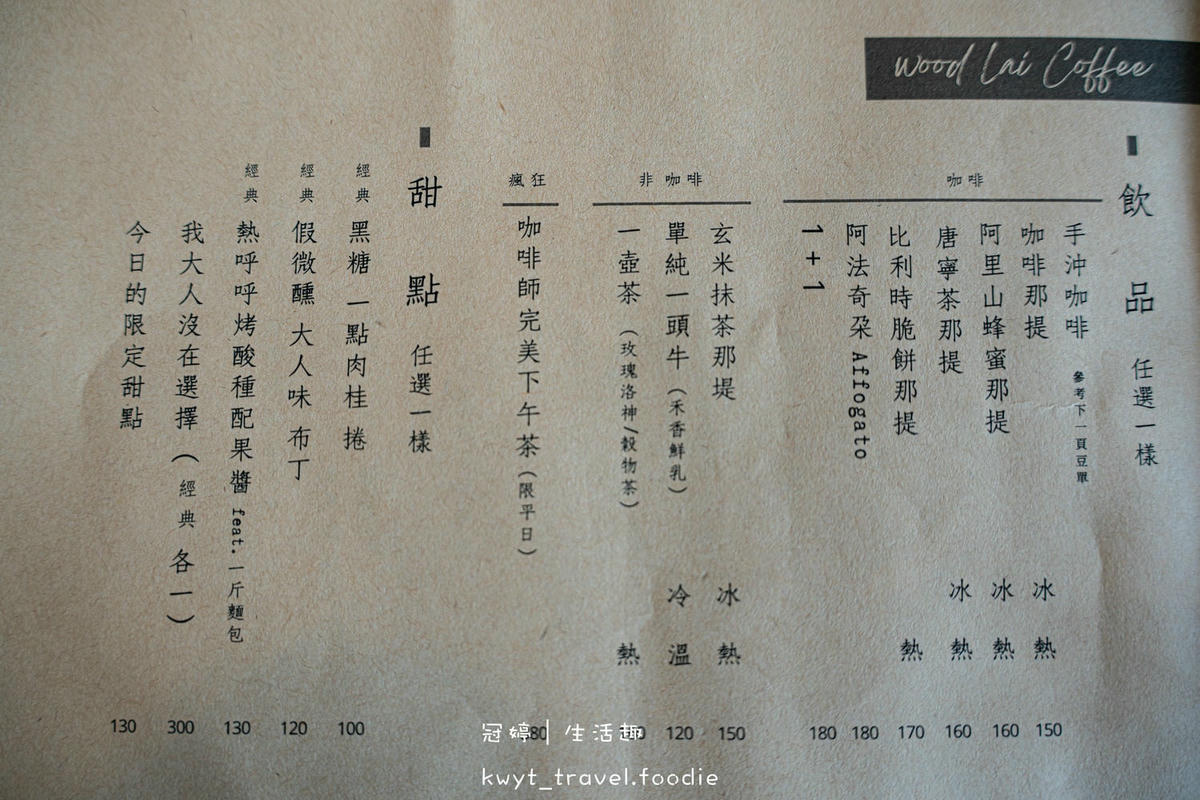 wood Lai Coffee
飲品 任選一樣
咖啡
手沖咖啡 參考下一頁豆單
咖啡那提 冰 熱 150
阿里山蜂蜜那提 冰 熱 160
唐寧茶那提 冰 熱 160
比利時脆餅那提 熱 170
阿法奇朶 Affogato 180
1+1 180
非咖啡
玄米抹茶那堤 冰 熱 150
單純一頭牛（禾香鮮乳） 冷 溫 120
一壺茶（玫瑰洛神/穀物茶） 熱
瘋狂
咖啡師完美下午茶（限平日）
甜點 任選一樣
經典 黑糖 一點肉桂 捲 100
經典 假微醺 大人味 布丁 120
經典 熱呼呼烤酸種配果醬 feat. 一斤麵包 130
我大人沒在選擇（經典 各一） 300
今日的限定甜點 130
冠婷│生活趣
kwyt_travel.foodie